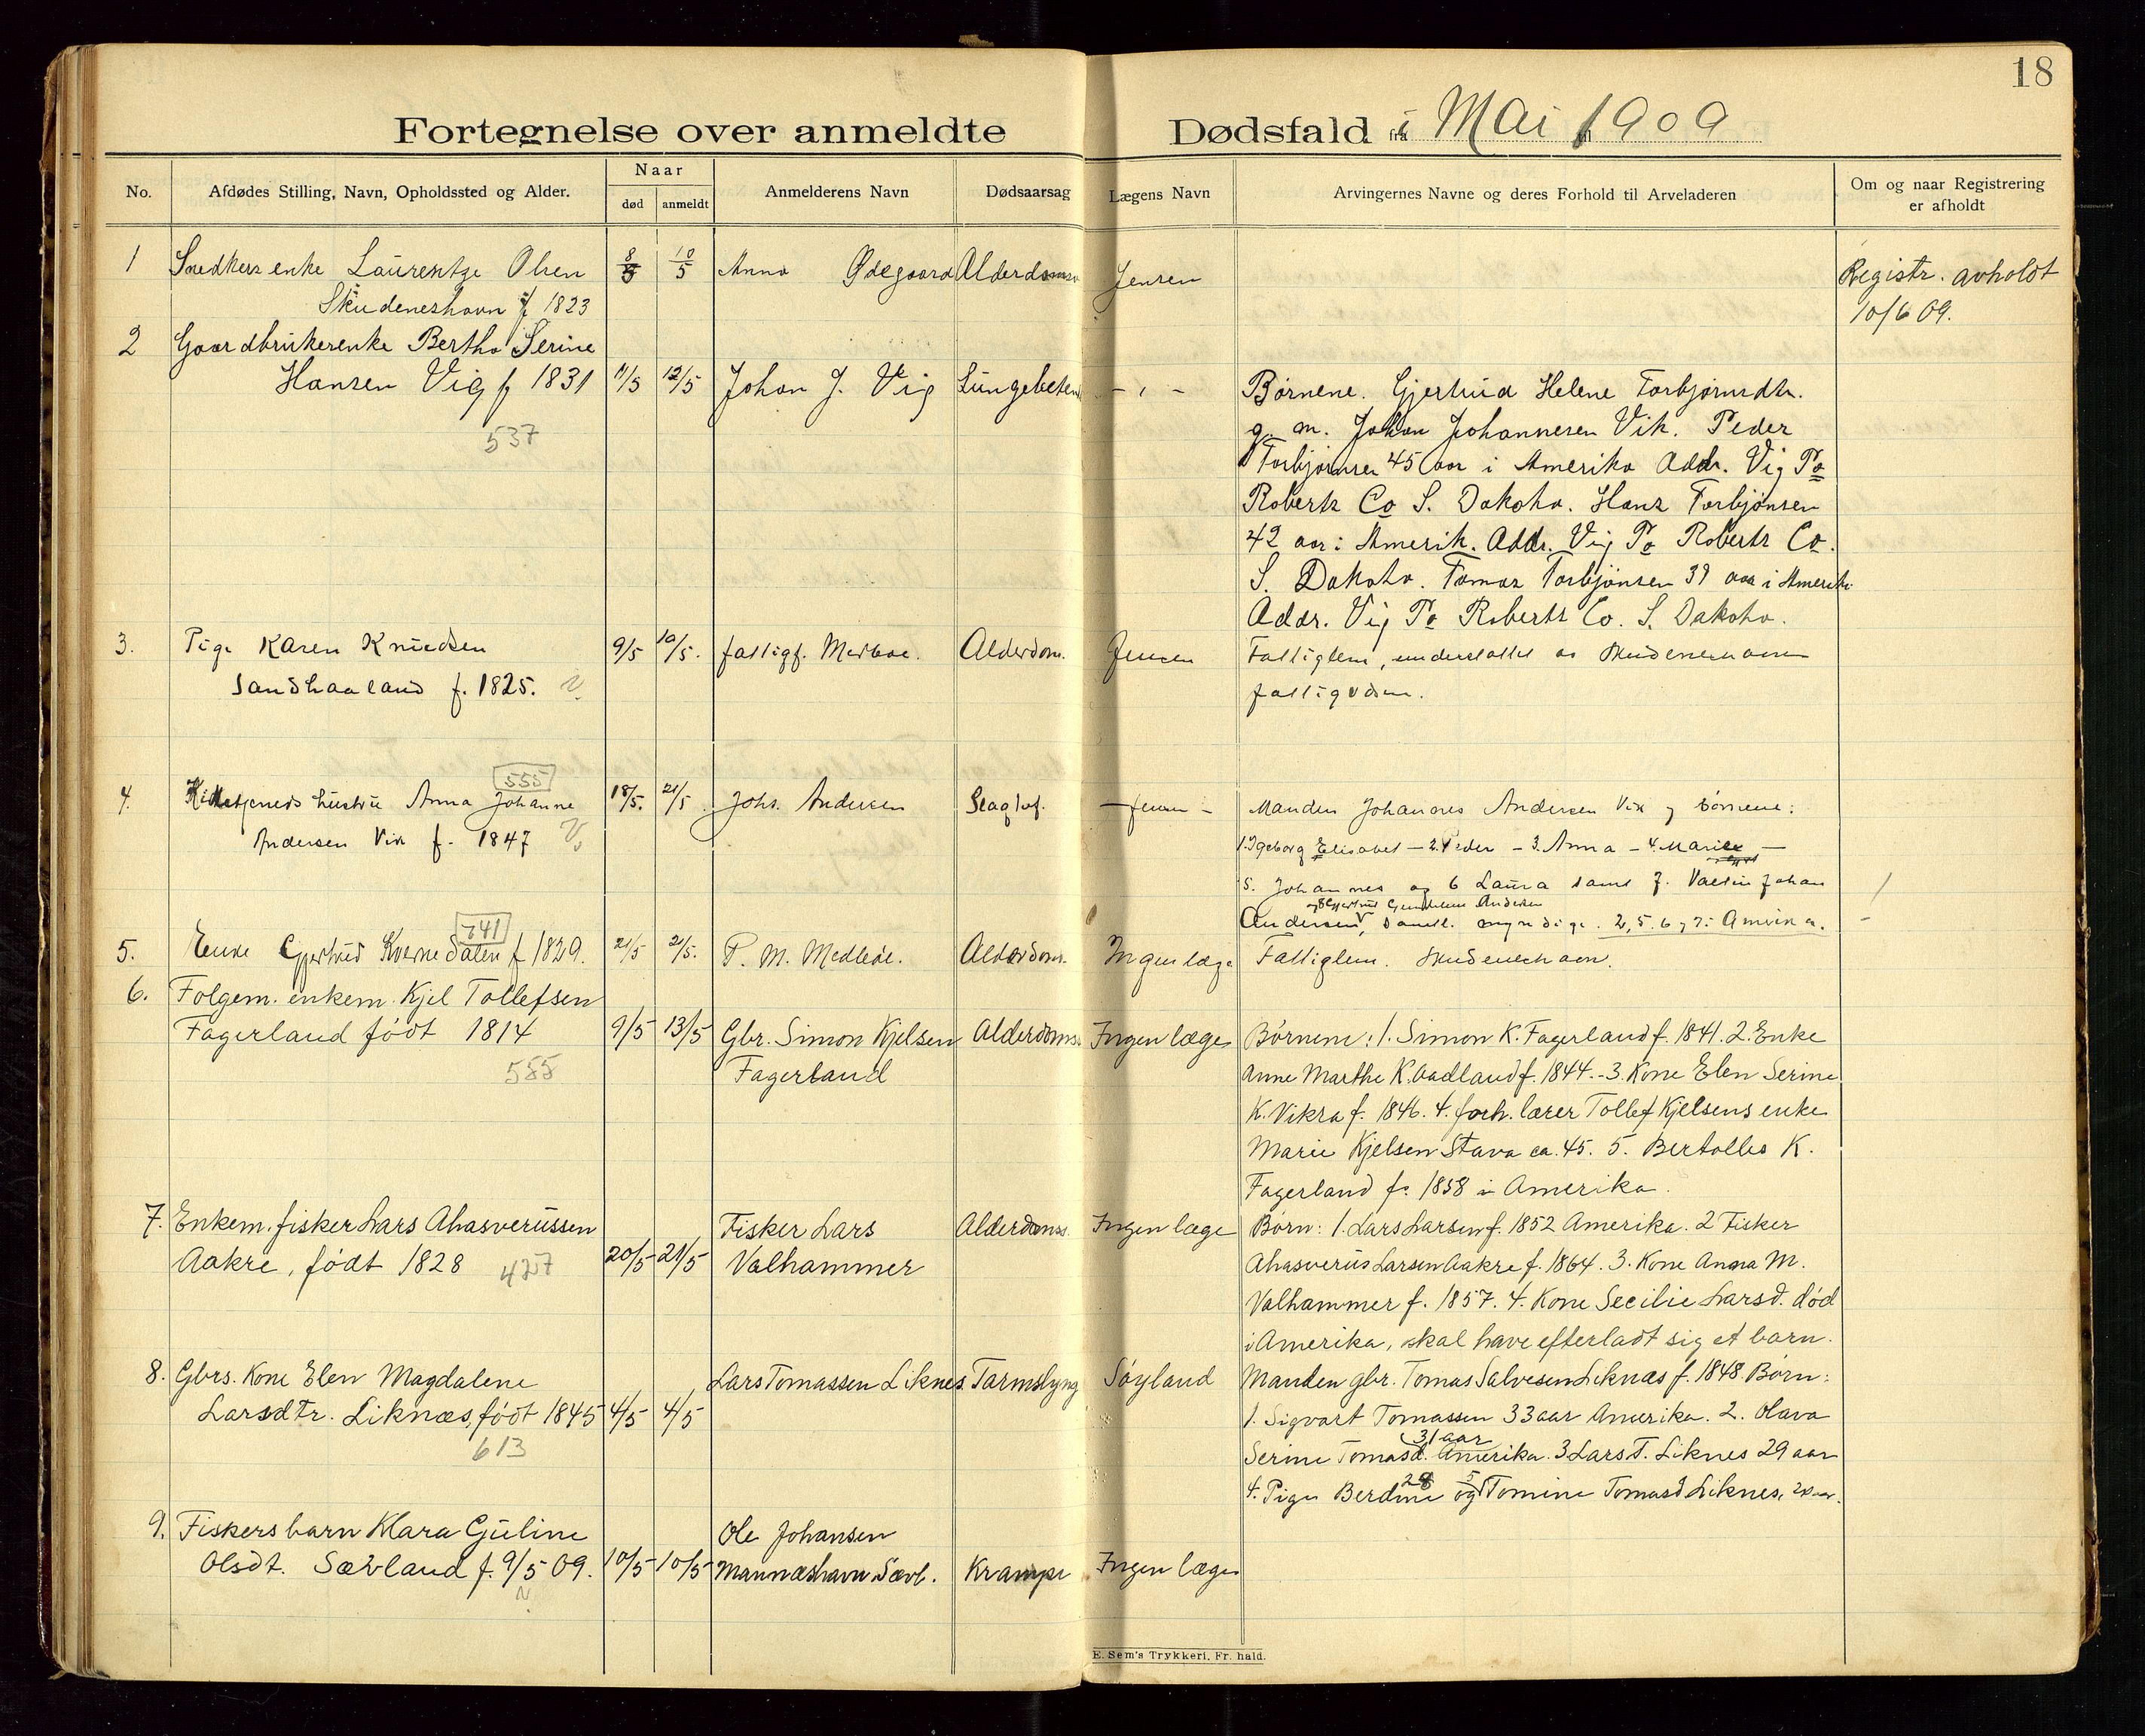 18
Fortegnelse over anmeldte Dødsfald i Mai 1909
No.
Afdødes Stilling, Navn, Opholdssted og Alder.
Naar
død
anmeldt
Anmelderens Navn
Dødsaarsag
Lægens Navn
Arvingernes Navne og deres Forhold til Arveladeren
Om og naar Registrering
er afholdt
1 Snedkers enke Laurentze Olsen 8/5 10/5 Anna Ødegaard Alderdomss Jensen Registr. avholdt
Skudeneshavn f 1823 10/6 09.
2 Gaardbrukerenke Bertha Serine
Hansen Vig f 1831 11/5 12/5 Johan J. Vig Lungebeten - " - Børnene. Gjertrud Helene Torbjørnsdtr.
537 g. m. Johan Johannesen Vik. Peder
Torbjørnsen 45 aar i Amerika Addr. Vig Po
Roberts Co S. Dakota. Hans Torbjønsen
42 aar i Amerik. Addr. Vig Po Roberts Co.
S. Dakota. Tomas Torbjønsen 39 aar i Amerika
Addr. Vig Po Roberts Co. S. Dakota.
3. Pige Karen Knudsen 9/5 10/5. fattigf. Medboe. Alderdom. Jensen Fattiglem, understøttet av Skudeneshavn
Sandhaaland f. 1825. fattigvæsen.
555
4. Anna Johanne 18/5. 21/5 Johs. Andersen Slagtilf. Manden Johannes Andersen Vik og børnene:
Andersen Vik f. 1847 1. Igeborg Elisabet - 2. Peder - 3. Anna - 4. Marie -
5. Johannes og 6 Laura samt 7. Johan
og 8 Gjertrud Andersen
Andersen, samtl. myndige. 2, 5. 6 og 7 i Amerika.
741
5. Enke Gjertrud Kvernedalen f 1829. 21/5 21/5. P. M. Medbøe. Alderdom. Ingen læge Fattiglem. Skudeneshavn.
6. Folgem. enkem. Kjel Tollefsen
Fagerland født 1814 9/5 13/5 Gbr. Simon Kjelsen Alderdomss. Ingen læge Børnene: 1. Simon K. Fagerland f. 1841. 2. Enke
555 Fagerland Anne Marthe K. Aadland f. 1844. - 3. Kone Elen Serine
K. Vikra f. 1846. 4. forh. lærer Tollef Kjelsens enke
Marie Kjelsen Stava ca. 45. 5. Bertolles K.
Fagerland f. 1858 i Amerika.
7. Enkem. fisker Lars Ahasverussen Fisker Lars Alderdomss. Ingen læge Børn: 1. Lars Larsen f. 1852 Amerika. 2 Fisker
Aakre, født 1828 20/5 21/5 Valhammer Ahasverus Larsen Aakre f. 1864. 3. Kone Anna M.
427 Valhammer f. 1857. 4. Kone Secilie Larsd. død
i Amerika, skal have efterladt sig et barn.
8. Gbrs. Kone Elen Magdalene Lars Tomassen Liknes. Tarmslyng Søyland Manden gbr. Tomas Salvesen Liknæs f. 1848. Børn:
Larsdtr. Liknæs, født 1845 4/5 4/5 1. Sigvart Tomassen 33 aar Amerika. 2. Olava
31 aar
613 Serine Tomasd. Amerika. 3 Lars T. Liknes 29 aar
4. Pige Berdine og 5 Tomine Tomasd Liknes,
9. Fiskers barn Klara Guline Ole Johansen
Olsdt. Sævland f. 9/5 09. 10/5 10/5 Mannæshavn Sævl. Krampe Ingen læge
E. Sem's Trykkeri, Fr. hald.